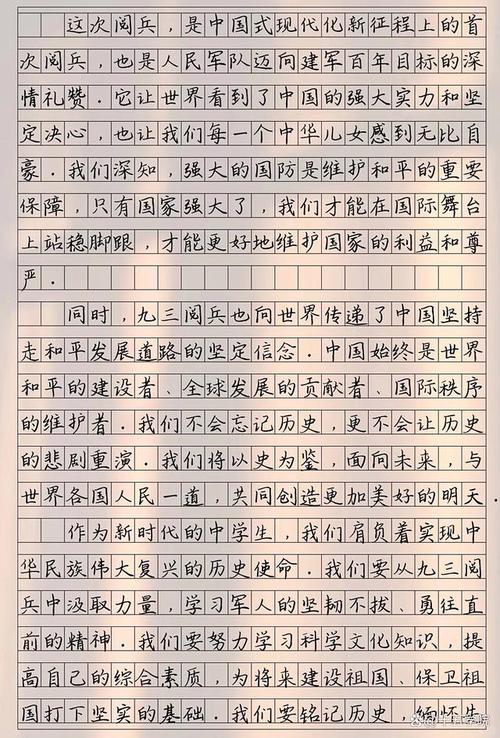 这次阅兵，是中国式现代化新征程上的首
次阅兵，也是人民军队迈向建军百年目标的深
情礼赞．它让世界看到了中国的强大实力和坚
定决心，也让我们每一个中华儿女感到无比自
豪．我们深知，强大的国防是维护和平的重要
保障，只有国家强大了，我们才能在国际舞台
上站稳脚跟，才能更好地维护国家的利益和尊
严．
同时，九三阅兵也向世界传递了中国坚持
走和平发展道路的坚定信念．中国始终是世界
和平的建设者、全球发展的贡献者、国际秩序
的维护者．我们不会忘记历史，更不会让历史
的悲剧重演．我们将以史为鉴，面向未来，与
世界各国人民一道，共同创造更加美好的明天．
作为新时代的中学生，我们肩负着实现中
华民族伟大复兴的历史使命．我们要从九三阅
兵中汲取力量，学习军人的坚韧不拔、勇往直
前的精神．我们要努力学习科学文化知识，提
高自己的综合素质，为将来建设祖国、保卫祖
国打下坚实的基础．我们要铭记历史，缅怀先